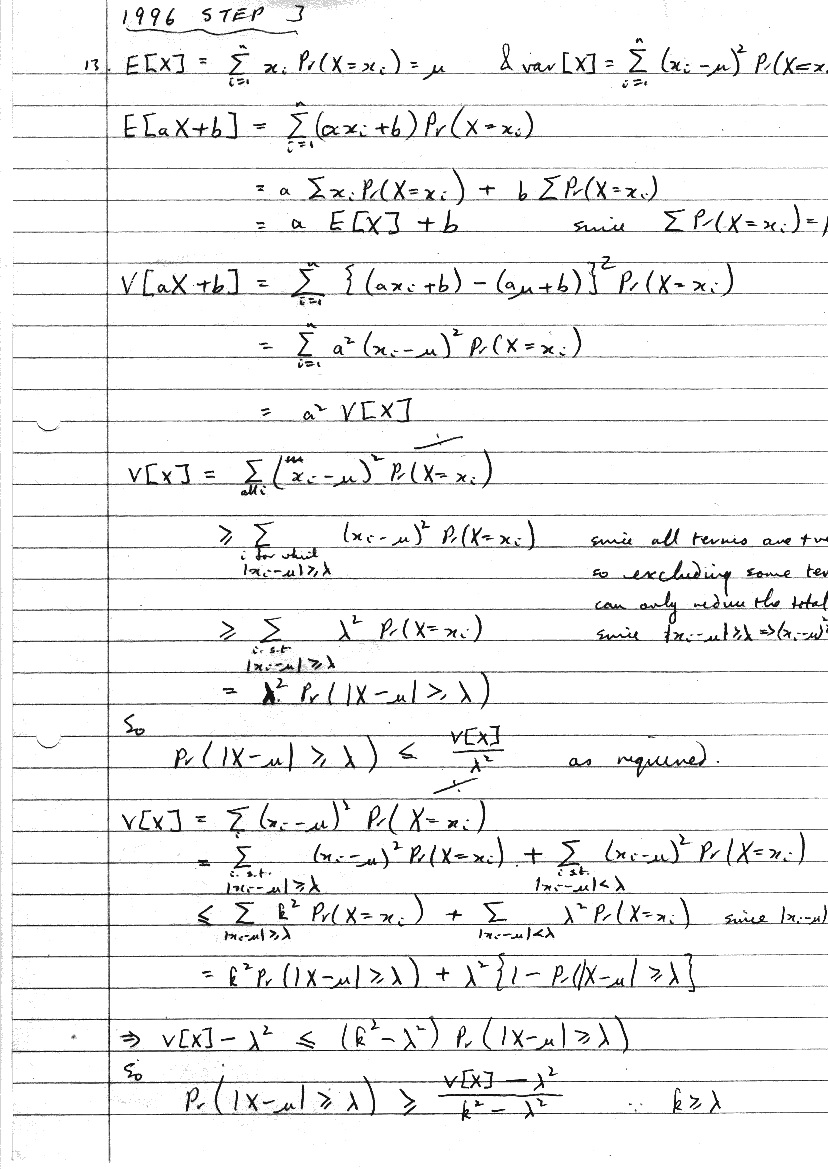 1996 STEP 3
13. E[X] = Σ_{i=1}^{n} x_i Pr(X=x_i) = μ & var[X] = Σ_{i=1}^{n} (x_i-μ)² Pr(X=x
E[aX+b] = Σ_{i=1}^{n} (ax_i+b) Pr(X=x_i)
= a Σ x_i Pr(X=x_i) + b Σ Pr(X=x_i)
= a E[X] + b since Σ Pr(X=x_i) =
V[aX+b] = Σ_{i=1}^{n} {(ax_i+b) - (aμ+b)}² Pr(X=x_i)
= Σ_{i=1}^{n} a² (x_i-μ)² Pr(X=x_i)
= a² V[X]
V[X] = Σ_{all i} (x_i-μ)² Pr(X=x_i)
≥ Σ_{i for which |x_i-μ|≥λ} (x_i-μ)² Pr(X=x_i) since all terms are +ve
so excluding some ter
can only reduce the total
≥ Σ_{i s.t. |x_i-μ|≥λ} λ² Pr(X=x_i) since |x_i-μ|≥λ ⇒ (x_i-μ)²
= λ² Pr(|X-μ| ≥ λ)
So
Pr(|X-μ| ≥ λ) ≤ V[X]/λ² as required.
V[X] = Σ_i (x_i-μ)² Pr(X=x_i)
= Σ_{i s.t. |x_i-μ|≥λ} (x_i-μ)² Pr(X=x_i) + Σ_{i s.t. |x_i-μ|<λ} (x_i-μ)² Pr(X=x_i)
≤ Σ_{|x_i-μ|≥λ} k² Pr(X=x_i) + Σ_{|x_i-μ|<λ} λ² Pr(X=x_i) since |x_i-μ|
= k² Pr(|X-μ|≥λ) + λ² {1 - Pr(|X-μ| ≥ λ}
⇒ V[X] - λ² ≤ (k²-λ²) Pr(|X-μ|≥λ)
So
Pr(|X-μ| ≥ λ) ≥ (V[X] - λ²)/(k² - λ²) ∵ k ≥ λ